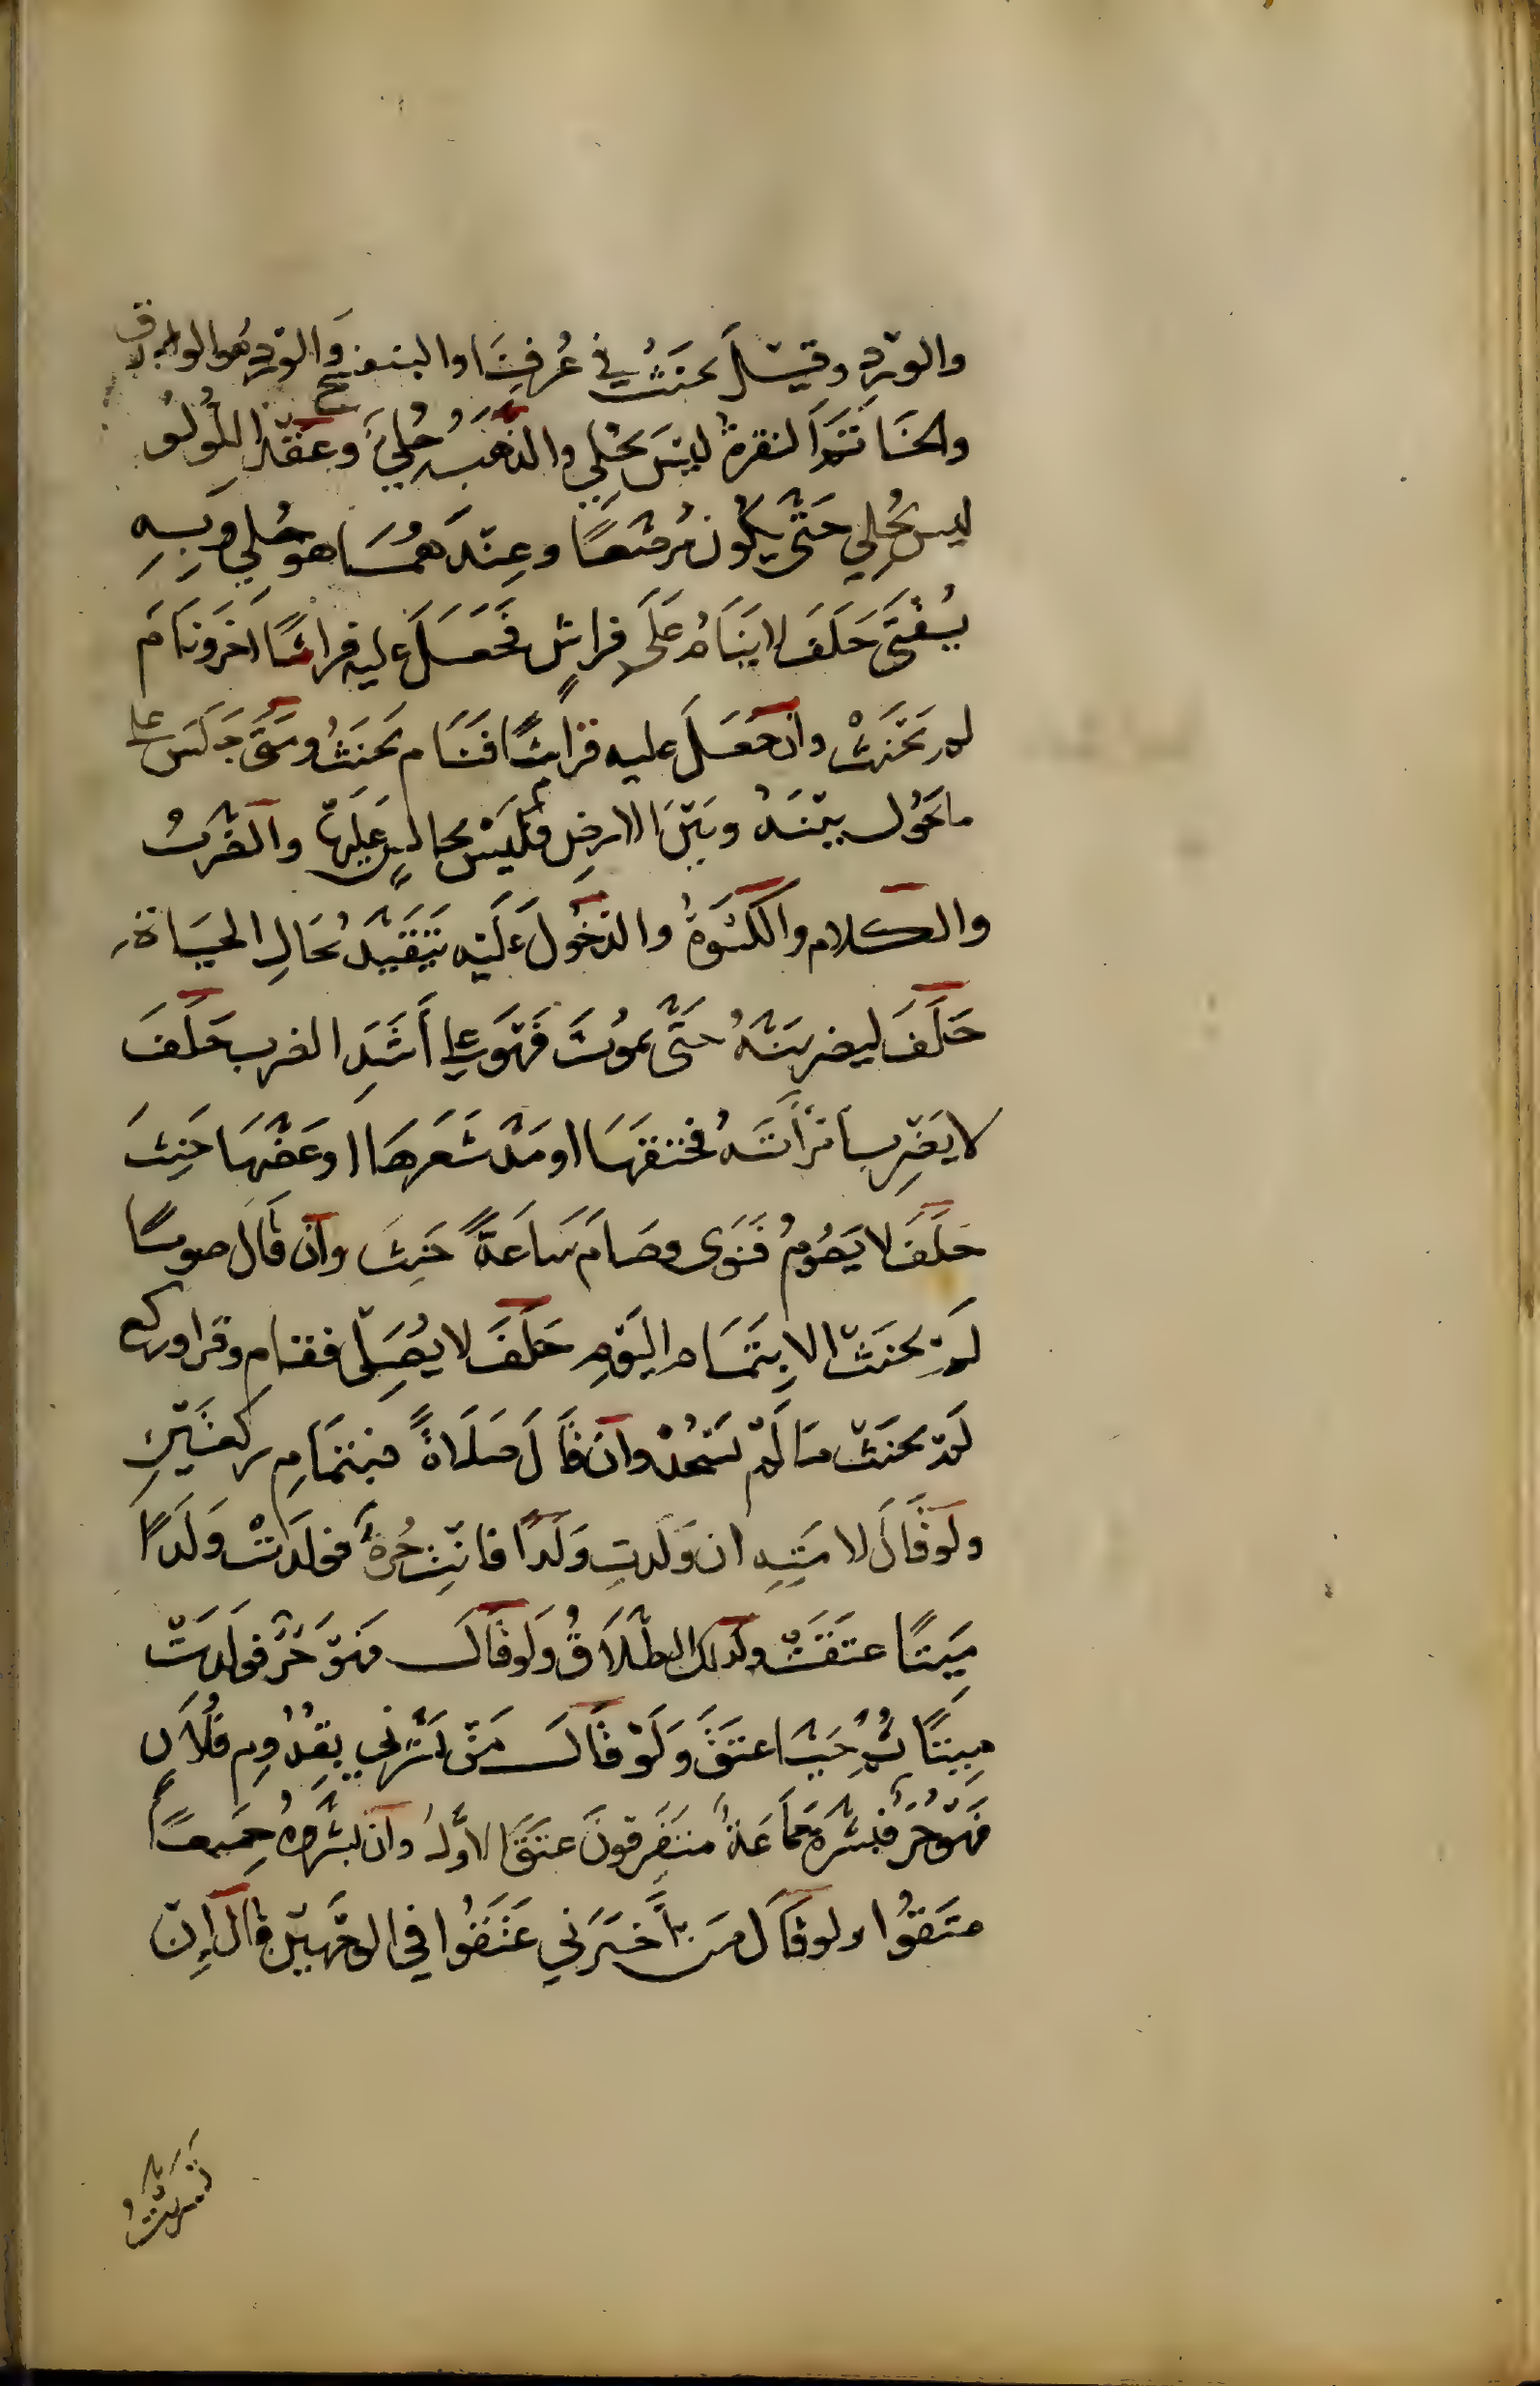 والورد وقيل يحنث في عرفنا والبنفسج والورد هو الورق
والخاتم النقرة ليس بحلي والذهب حلي وعقد اللولو
ليس بحلي حتى يكون مرصعا وعندهما هو حلي وبه
يفتى حلف لا ينام على فراش فجعل عليه فراشا اخر ونام
لم يحنث وان جعل عليه قراما فنام يحنث ومتى جلس على
ما يحول بينه وبين الارض فليس بجالس عليها والضرب
والكلام والكسوة والدخول عليه يتقيد بحال الحياة
حلف ليضربنه حتى يموت فهو على أشد الضرب حلف
لا يضرب امرأته فخنقها او مد شعرها او عضها حنث
حلف لا يصوم فنوى وصام ساعة حنث وان قال صوما
لم يحنث الا بتمام اليوم حلف لا يصلى فقام وقرا وركع
لم يحنث ما لم يسجد وان قال صلاة فبتمام ركعتين
ولو قال لامته ان ولدت ولدا فانت حرة فولدت ولدا
ميتا عتقت وكذلك الطلاق ولو قال فهو حر فولدت
ميتا ثم حيا عتق ولو قال من بشرني بقدوم فلان
فهو حر فبشره جماعة متفرقون عتق الاول وان بشروه جميعا
عتقوا ولو قال من أخبرني عتقوا في الوجهين قال إن
تسريت